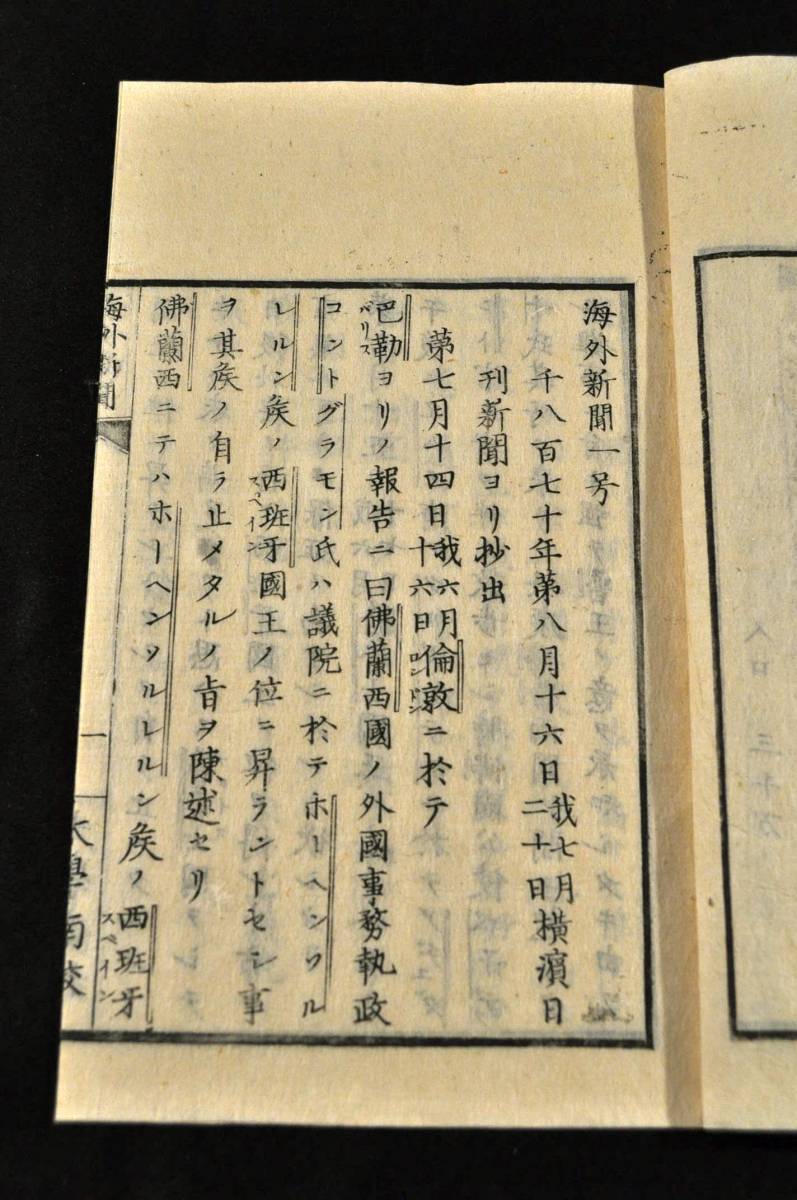 海外新聞一号
千八百七十年第八月十六日我七月二十日橫濱日
刊新聞ヨリ抄出
第七月十四日我六月十六日倫敦ロンドンニ於テ
巴勒パリスヨリノ報告ニ曰佛蘭西國ノ外國事務執政
コントグラモン氏ハ議院ニ於テホーヘンソル
レルン矦ノ西班牙スペイン國王ノ位ニ昇ラントセシ事
ヲ其矦ノ自ラ止メタルノ旨ヲ陳述セリ
佛蘭西ニテハホーヘンソルレルン矦ノ西班牙スペイン
海外新聞
一
大學南校